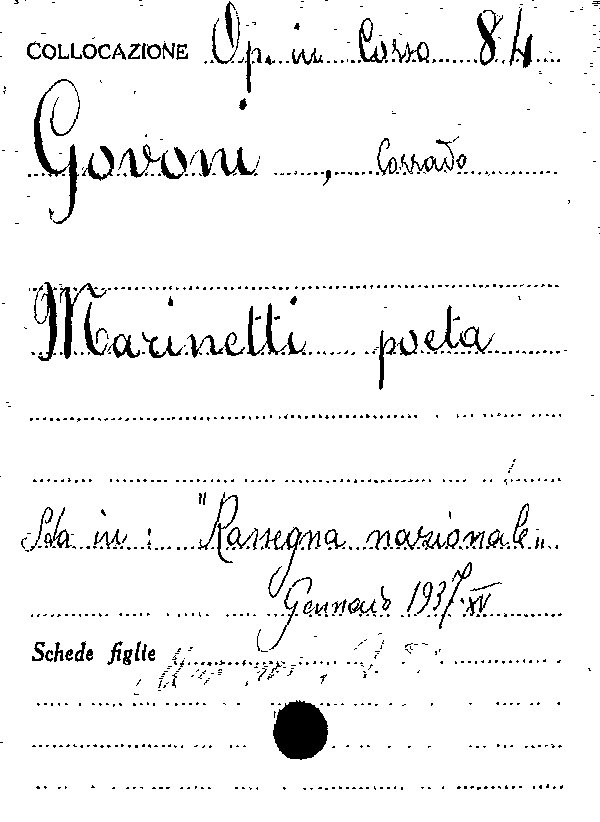 COLLOCAZIONE Op. in Corso 84
Govoni , Corrado
Marinetti poeta
Sta in : "Rassegna nazionale„
Gennaio 1937-XV
Schede figlie